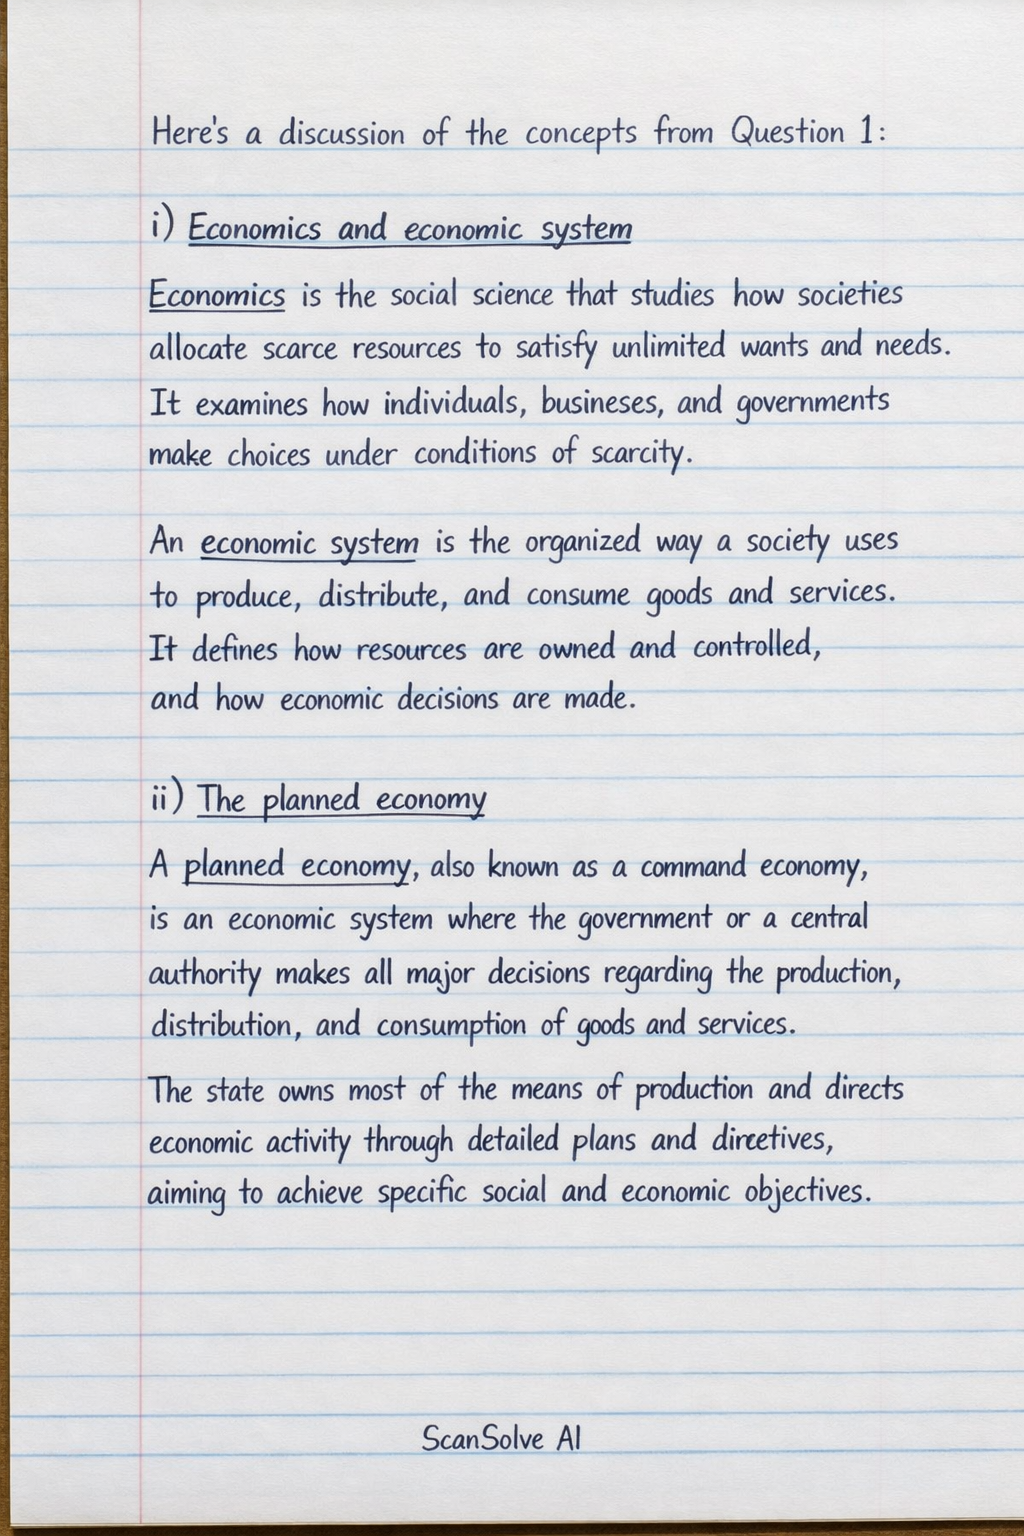 Here's a discussion of the concepts from Question 1:
i) Economics and economic system
Economics is the social science that studies how societies
allocate scarce resources to satisfy unlimited wants and needs.
It examines how individuals, busineses, and governments
make choices under conditions of scarcity.
An economic system is the organized way a society uses
to produce, distribute, and consume goods and services.
It defines how resources are owned and controlled,
and how economic decisions are made.
ii) The planned economy
A planned economy, also known as a command economy,
is an economic system where the government or a central
authority makes all major decisions regarding the production,
distribution, and consumption of goods and services.
The state owns most of the means of production and directs
economic activity through detailed plans and dircetives,
aiming to achieve specific social and economic objectives.
ScanSolve AI